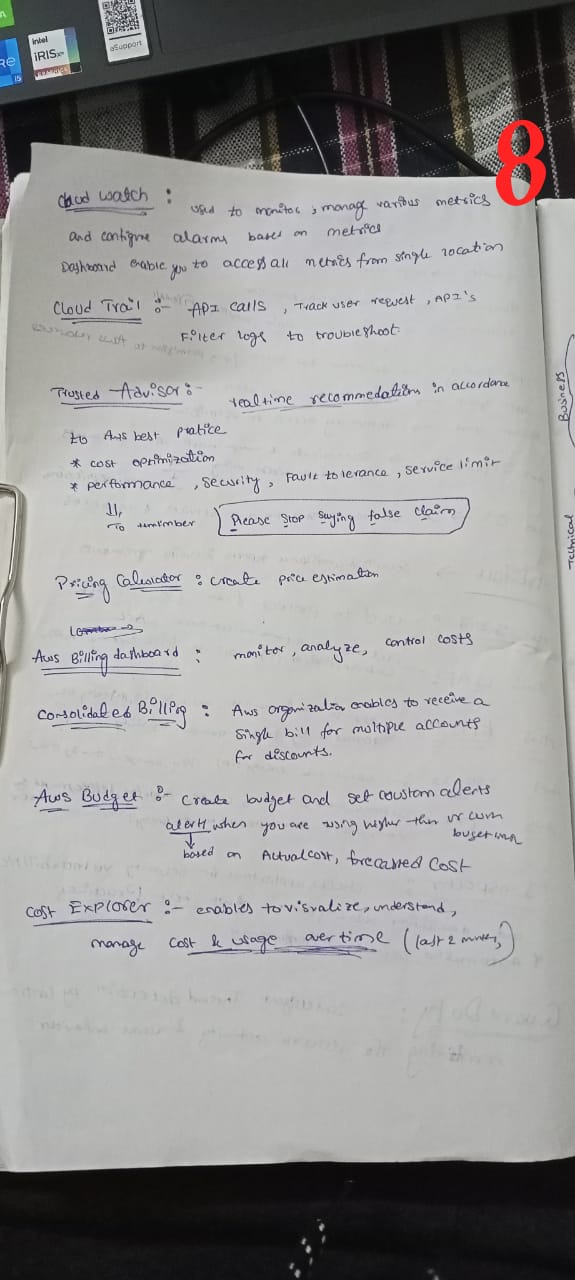 intel
iRIS xe
RE
i5
eSupport
8
cloud watch : used to monitor, manage various metrics
and configure alarms based on metrics
Dashboard enable you to access all metrics from single location
Cloud Trail :- API calls, Track user request, API's
Filter logs to troubleshoot
Trusted Advisor :- realtime recommedations in accordance
to Aws best pratice
* cost optimization
* performance, security, Fault tolerance, service limit
To remember Please Stop Saying false claim
Pricing Calculator : create price estimation
Aws Billing dashboard : monitor, analyze, control costs
Consolidated Billing : Aws organization enables to receive a
single bill for multiple accounts
for discounts.
Aws Budget :- Create budget and set coustom alerts
alert when you are using higher than ur
based on Actual cost, forecasted cost
Cost Explorer :- enables to visualize, understand,
manage cost & usage over time (last 2
Business
Technical